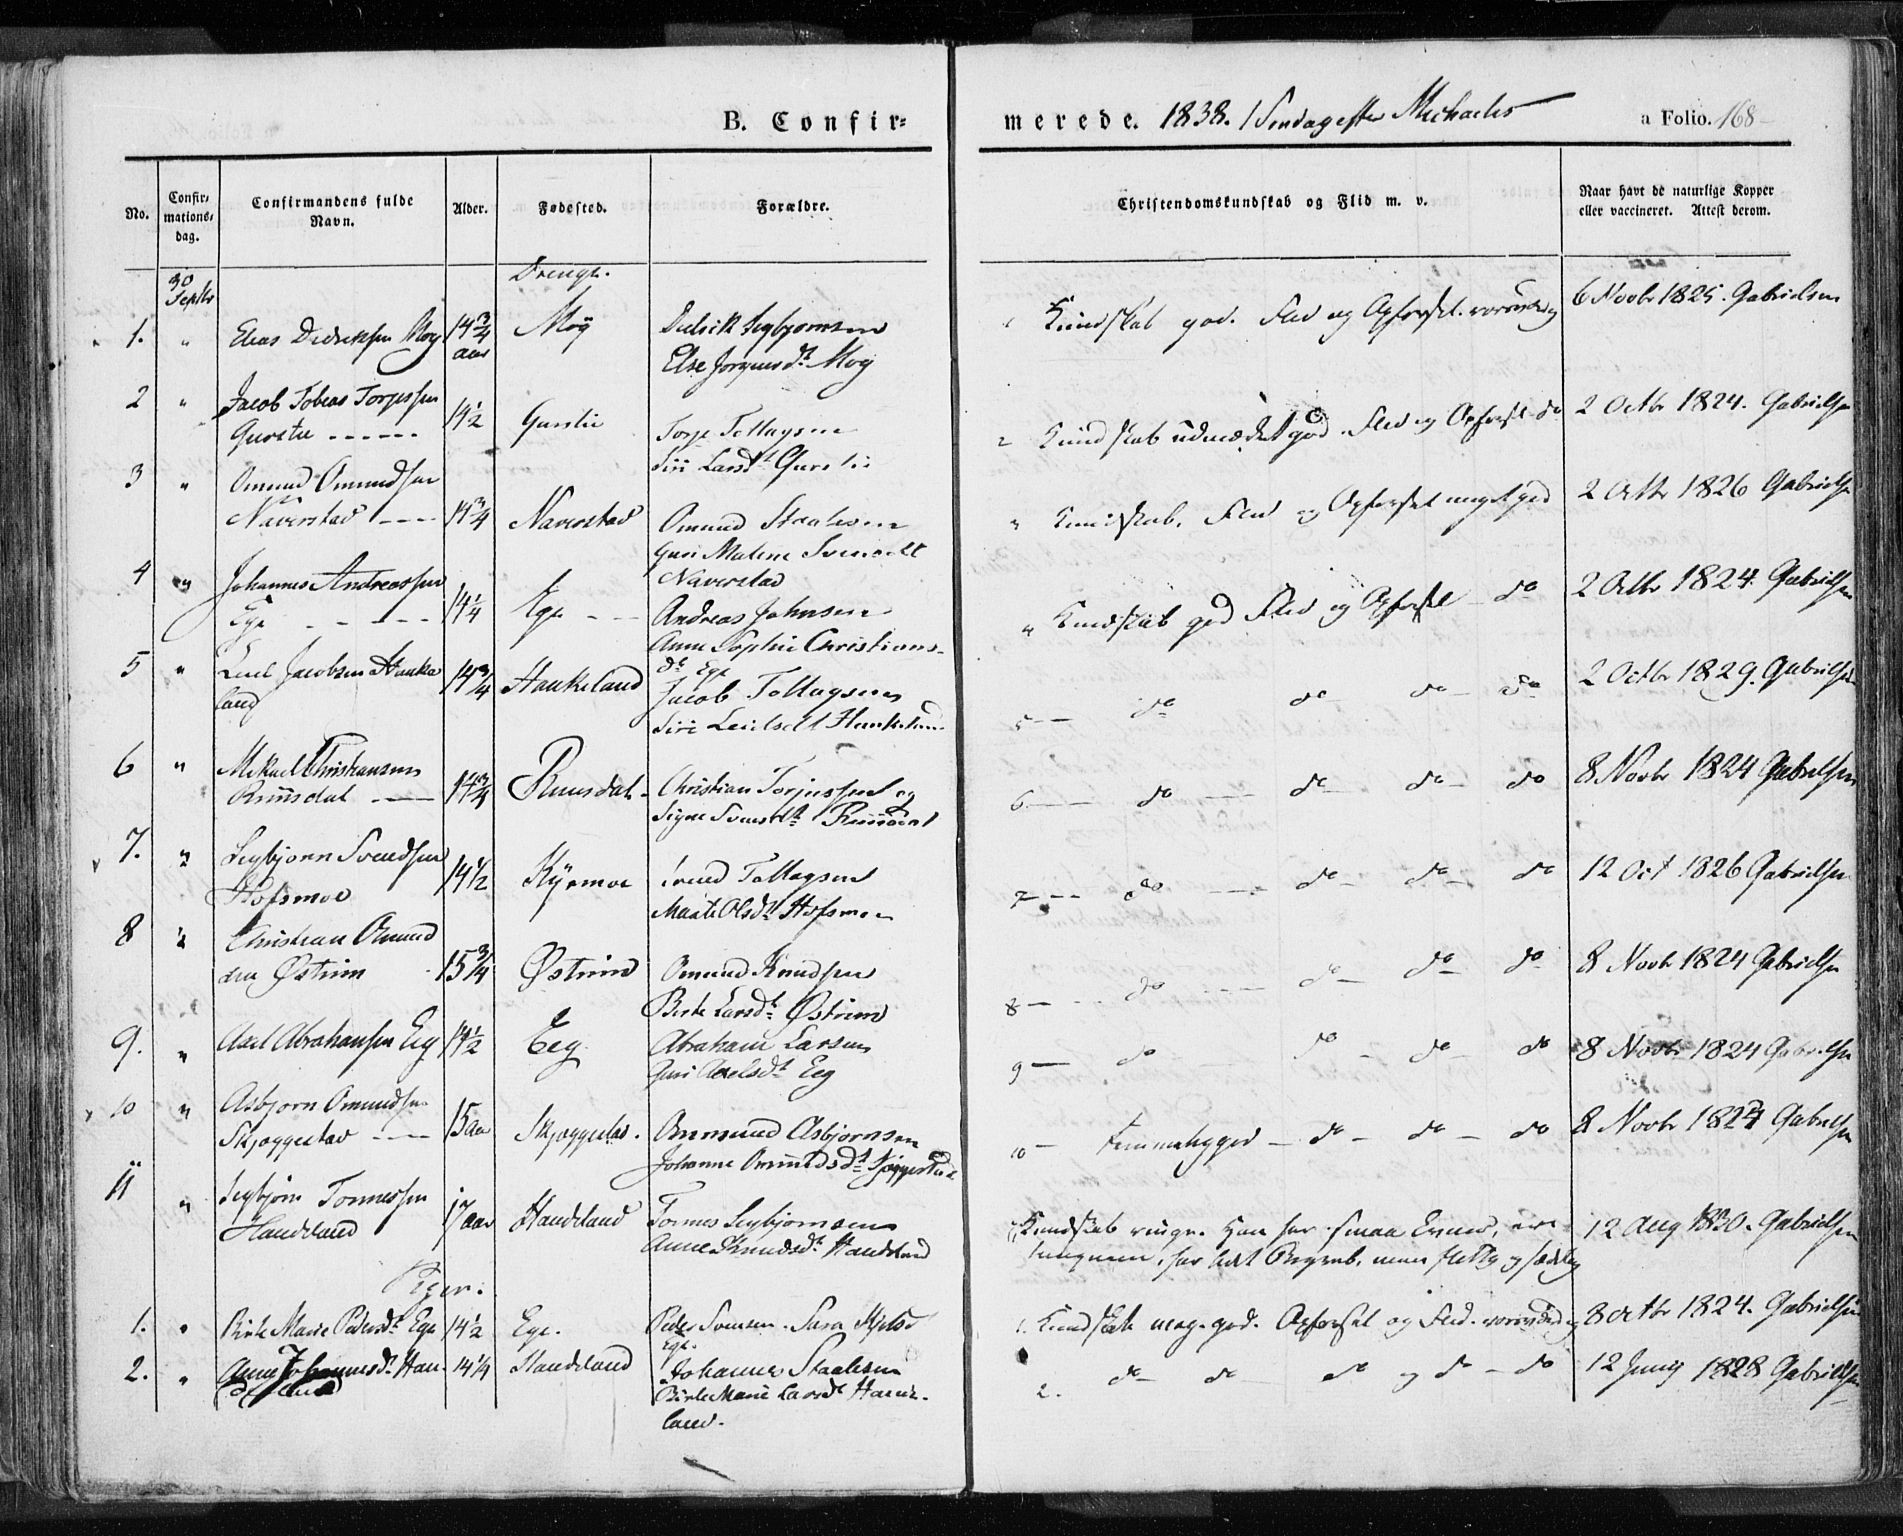 B. Confir-
merede. 1838. 1 Søndag efter Michaelis
a Folio. 168
No.
Confir-
mations-
dag.
Confirmandens fulde
Navn.
Alder.
Fødested.
Forældre.
Christendomskundskab og Flid m. v.
Naar havt de naturlige Kopper
eller vaccineret. Attest derom.
30
Septbr
Drenge.
1. " Elias Didriksen Moy 14 3/4 aar Moÿ Didrik Seybjornsen
Else Jorginesdt Moy
Kundskab god. Flid og Opførsel
6 Novbr 1825. Gabrielsen
2 " Jacob Tobias Torjessen
14 1/2
Torje Tollagsen
Siri Larsdt
2 Kundskab udmærket god. Flid og Opførsel do
2 Octbr 1824. Gabrielsen
3 " Omund Omundsen
Naverstad 14 3/4 Naverstad Omund Staalesen
Guri Malene
Naverstad
" Kundskab, Flid og Opførsel meget god
2 Octbr 1826 Gabrielsen
4 " Johannes Andreassen
Ege 14 1/4 Ege Andreas Johnsen
Anne Sophie Christians-
dt Ege
" Kundskab god Flid og Opførsel do
2 Octbr 1824. Gabrielsen
5 " Jacobsen Hauke
land 14 3/4 Haukeland Jacob Tollagsen
Siri Haukeland
5 do do do do
2 Octbr 1829. Gabrielsen
6 " Mikael Christiansen
Ruusdal 14 3/4 Ruusdal Christian Torjussen og
Signe Ruusdal
6 do do do do
8 Novbr 1824 Gabrielsen
7. " Seybjorn Svendsen
Hofsmoe 14 1/2 Kÿrmoe Svend Tollagsen
Marte Olsdt Hofsmoe
7 do do do do
12 Oct 1826 Gabrielsen
8 " Christian Omund
sen Østrim 15 3/4 Østrim Omund Knudsen
Berte Larsdt Østrim
8 do do do do
8 Novbr 1824 Gabrielsen
9. " Axel Abrahamsen Eeg 14 1/2 Eeg Abraham Larsen
Guri Axelsdt Eeg
9 do do do do
8 Novbr 1824 Gabrielsen
10 " Asbjorn Omundsen
Skjæggestad 15 aar Skjæggestad. Ommund Asbjornsen
Johanne Omundsdt
10 temmelig god do do do
8 Novbr 1824 Gabrielsen
11 " Seybjørn Tonnessen
Haudeland 17 aar Haudeland Tonnes Seybjornsen
Anne Knudsdt Haudeland
Kundskab ringe. Han har smaa Evner,
har lidt Begreb, men flittig og sædelig
12 Aug 1830. Gabrielsen
Piger.
1. " Birte Marie Pedersdt Ege 14 1/2 Ege. Peder Svensen. Sara
Ege.
1. Kundskab meg. god. Opførsel og Flid
8 Octbr 1824. Gabrielsen
2. " Anne Johannesdt Hau
14 1/4 Haudeland Johannes Staalesen
Birte Marie Larsdt
land.
2. do do do og do do
12 Junij 1828 Gabrielsen